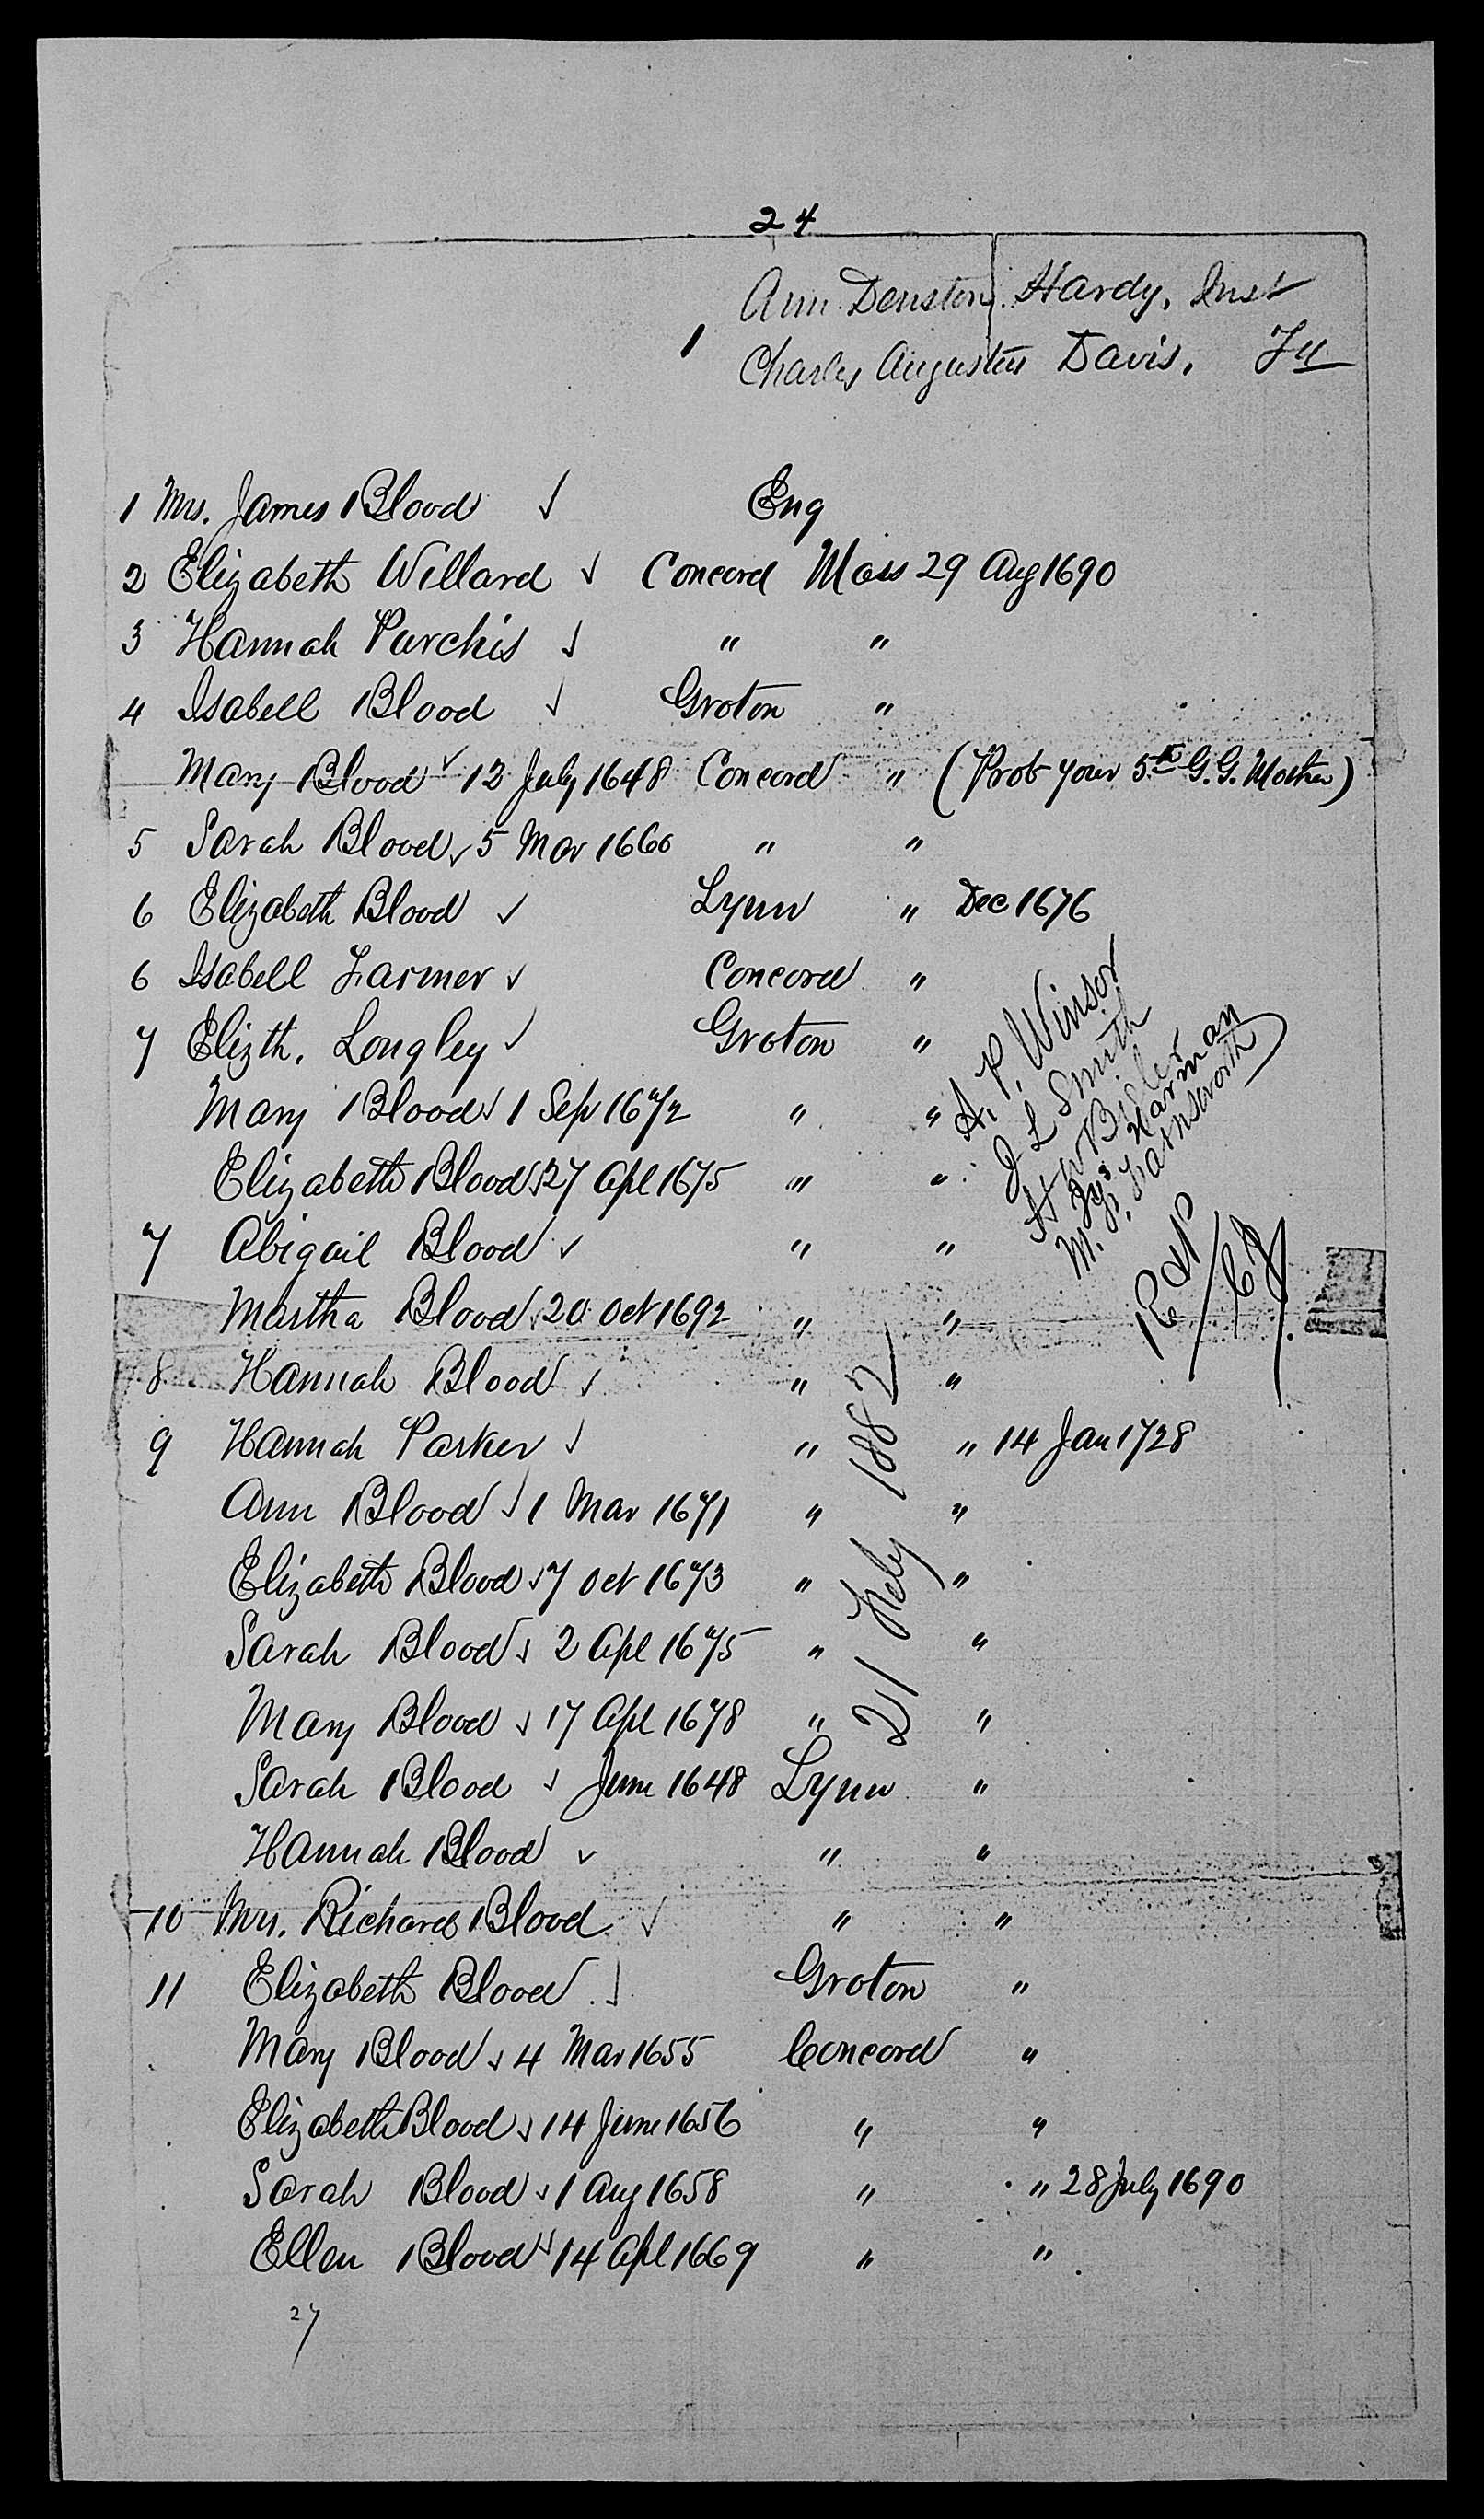 24
Ann Denston Hardy, Inst
1 Charles Augustus Davis,
1 Mrs. James Blood ✓ Eng
2 Elizabeth Willard ✓ Concord Mass 29 Aug 1690
3 Hannah Purchis ✓ " "
4 Isabell Blood ✓ Groton "
Mary Blood ✓ 12 July 1648 Concord " (Prob your 5th G. G. Mother)
5 Sarah Blood ✓ 5 Mar 1660 " "
6 Elizabeth Blood ✓ Lynn " Dec 1676
6 Isabell Farmer ✓ Concord "
7 Elizth. Longley ✓ Groton "
Mary Blood ✓ 1 Sep 1672 " "
Elizabeth Blood ✓ 27 Apl 1675 " "
7 Abigail Blood ✓ " "
Martha Blood ✓ 20 Oct 1692 " "
8 Hannah Blood ✓ " "
9 Hannah Parker ✓ " " 14 Jan 1728
Ann Blood ✓ 1 Mar 1671 " "
Elizabeth Blood ✓ 7 Oct 1673 " "
Sarah Blood ✓ 2 Apl 1675 " "
Mary Blood ✓ 17 Apl 1678 " "
Sarah Blood ✓ June 1648 Lynn "
Hannah Blood ✓ " "
10 Mrs. Richard Blood ✓ " "
11 Elizabeth Blood ✓ Groton "
Mary Blood ✓ 4 Mar 1655 Concord "
Elizabeth Blood ✓ 14 June 1656 " "
Sarah Blood ✓ 1 Aug 1658 " " 28 July 1690
Ellen Blood ✓ 14 Apl 1669 " "
27
A. P. Winsor
J L Smith
Harman
M. J. Farnsworth
21 Feby 1882